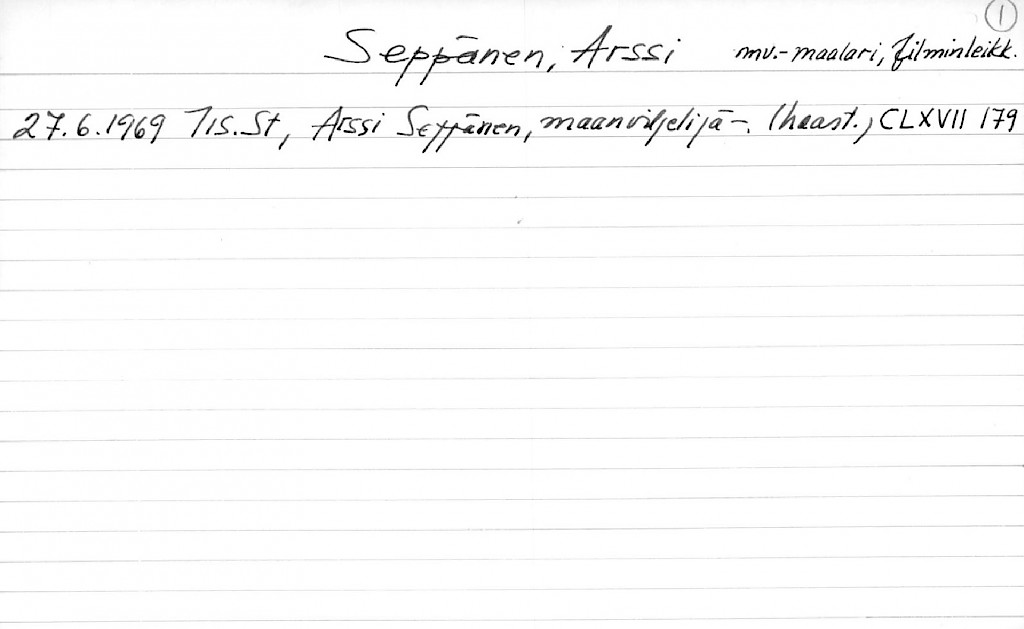 1
Seppänen, Arssi mv.-maalari, filminleikk.
27.6.1969 Iis.St, Arssi Seppänen, maanviljelijä-. (haast.) CLXVII 179